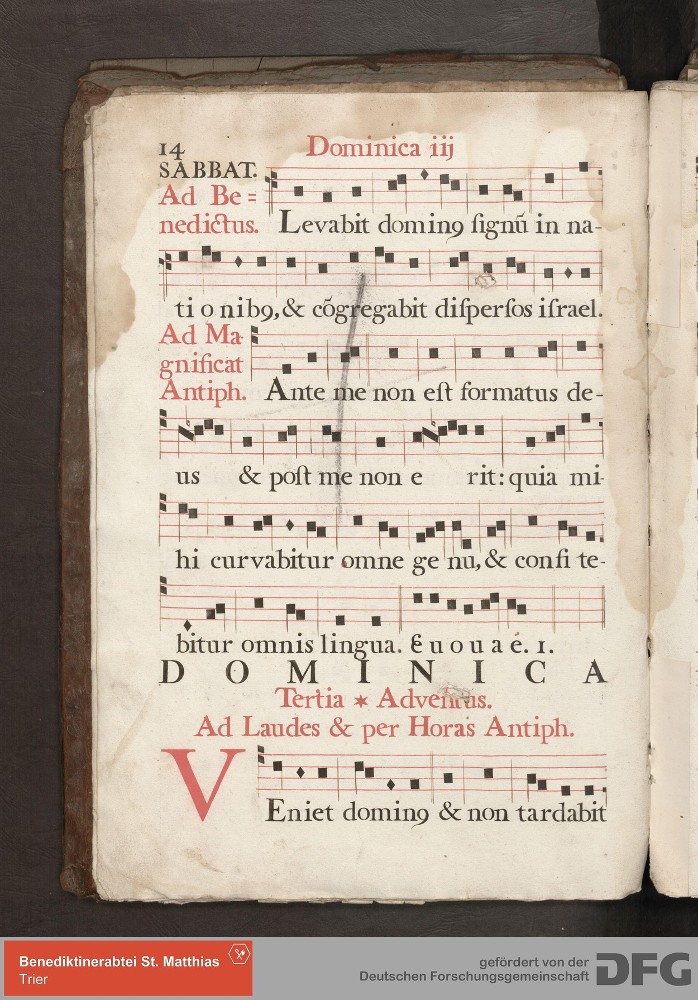 14 Dominica iij
SABBAT.
Ad Be=
nedictus. Levabit dominꝯ ſignũ in na-
ti o nibꝯ, & cõgregabit diſperſos iſrael.
Ad Ma-
gnificat
Antiph. Ante me non eſt formatus de-
us & poſt me non e rit: quia mi-
hi curvabitur omne ge nu, & confi te-
bitur omnis lingua. E u o u a e. 1.
DOMINICA
Tertia * Adventus.
Ad Laudes & per Horas Antiph.
VEniet dominꝯ & non tardabit
Benediktinerabtei St. Matthias
Trier
gefördert von der
Deutschen Forschungsgemeinschaft DFG